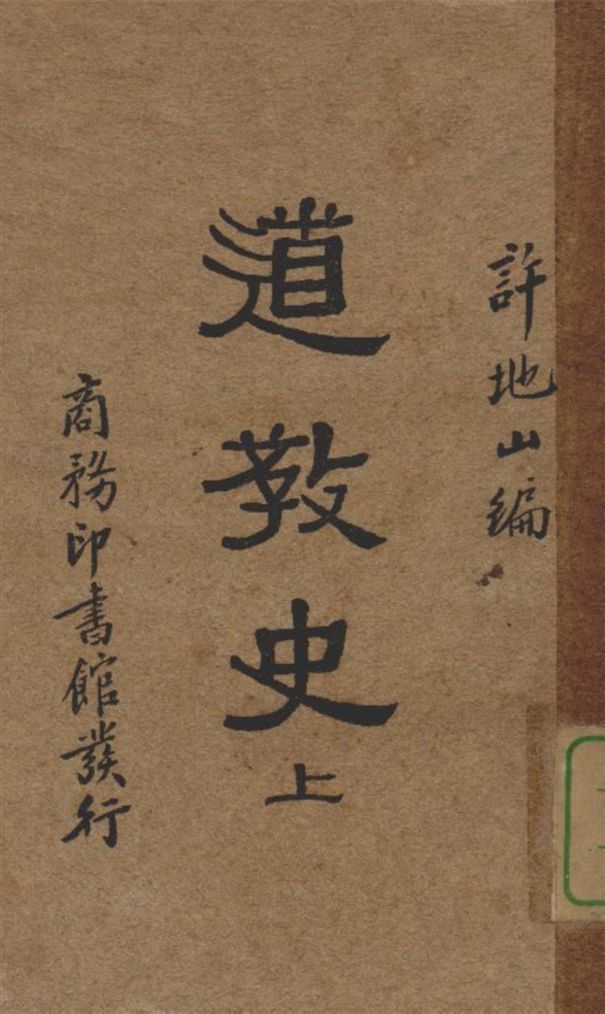 許地山編
道教史
上
商務印書館發行